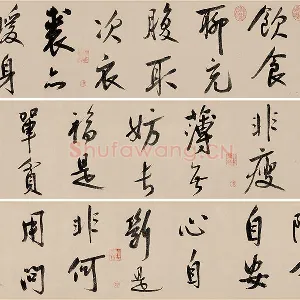 飲食
聊充
腹取
次衣
裘亦
暖身
非瘦
薄無
妨長
福是
單貧
自安
心自
斷是
非何
用問
Shufawang.CN